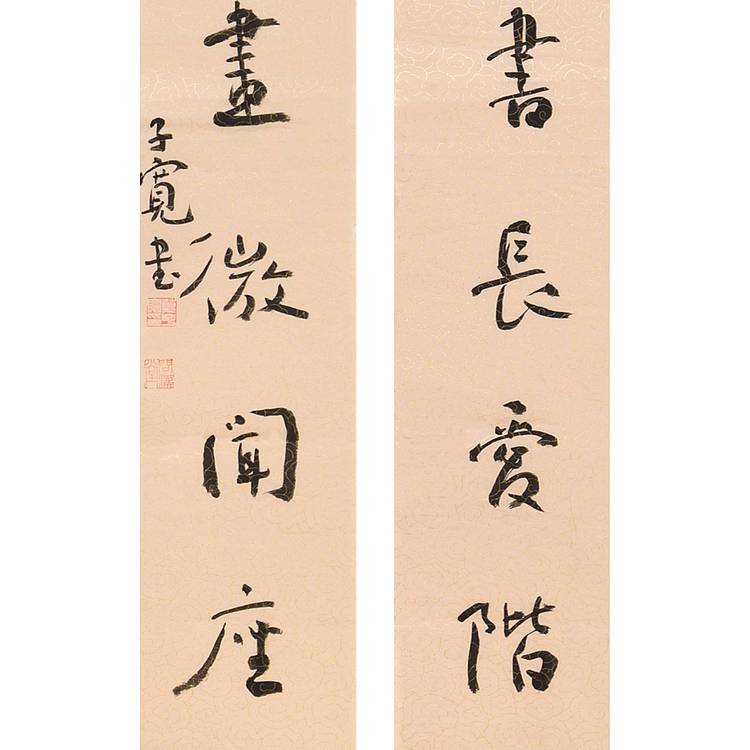 書長愛階
畫微聞座
子寬書